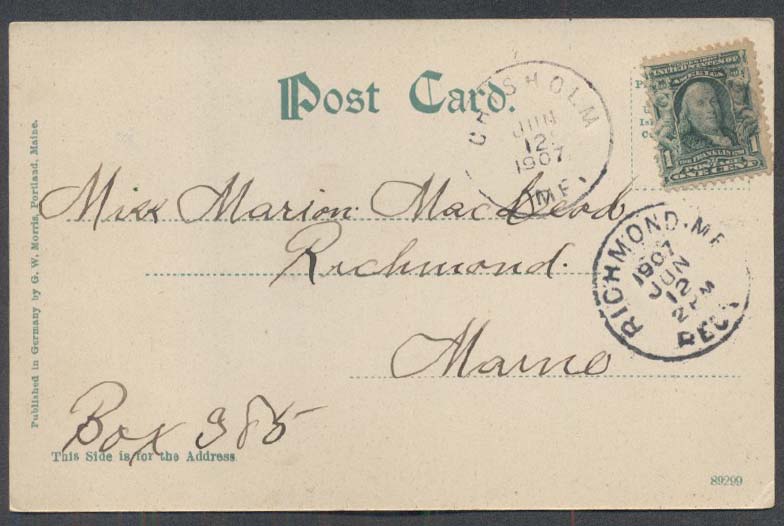 Post Card.
CHISHOLM
JUN
12
1907
ME.
UNITED STATES OF
AMERICA
1 1
ONE CENT
Miss Marion MacLeod
Richmond.
Maine
RICHMOND. ME
1907
JUN
12
2 PM
REC'D
Box 385
This Side is for the Address
Published in Germany by G. W. Morris, Portland, Maine.
89299